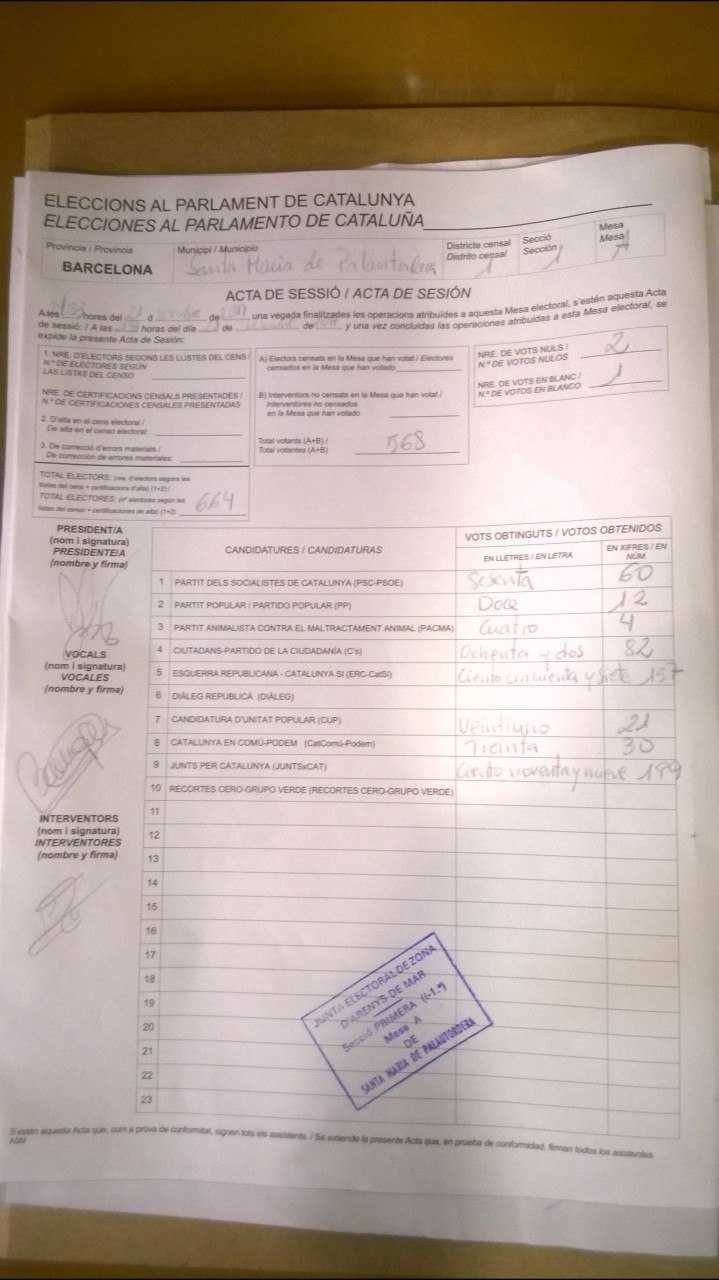 ELECCIONS AL PARLAMENT DE CATALUNYA
ELECCIONES AL PARLAMENTO DE CATALUÑA
Provincia / Provincia
BARCELONA
Municipi / Municipio
Santa Maria de Palautordera
Districte censal
Distrito censal
1
Secció
Sección
1
Mesa
Mesa
ACTA DE SESSIÓ / ACTA DE SESIÓN
A les hores del 21 d de 2017 una vegada finalitzades les operacions atribuïdes a aquesta Mesa electoral, s'estén aquesta Acta
de sessió: / A las horas del día de de y una vez concluidas las operaciones atribuidas a esta Mesa electoral, se
expide la presente Acta de Sesión:
1. NRE. D'ELECTORS SEGONS LES LLISTES DEL CENS /
N.º DE ELECTORES SEGÚN
LAS LISTAS DEL CENSO
NRE. DE CERTIFICACIONS CENSALS PRESENTADES /
N.º DE CERTIFICACIONES CENSALES PRESENTADAS
2. D'alta en el cens electoral /
De alta en el censo electoral:
3. De correcció d'errors materials /
De corrección de errores materiales:
TOTAL ELECTORS: (nre. d'electors segons les
llistes del cens + certificacions d'alta) (1+2) /
TOTAL ELECTORES: (nº electores según las
listas del censo + certificaciones de alta) (1+2)
664
A) Electors censats en la Mesa que han votat / Electores
censados en la Mesa que han votado
B) Interventors no censats en la Mesa que han votat /
Interventores no censados
en la Mesa que han votado
Total votants (A+B) /
Total votantes (A+B)
568
NRE. DE VOTS NULS /
N.º DE VOTOS NULOS
2
NRE. DE VOTS EN BLANC /
N.º DE VOTOS EN BLANCO
1
PRESIDENT/A
(nom i signatura)
PRESIDENTE/A
(nombre y firma)
VOCALS
(nom i signatura)
VOCALES
(nombre y firma)
INTERVENTORS
(nom i signatura)
INTERVENTORES
(nombre y firma)
CANDIDATURES / CANDIDATURAS
VOTS OBTINGUTS / VOTOS OBTENIDOS
EN LLETRES / EN LETRA
EN XIFRES / EN NÚM.
1 PARTIT DELS SOCIALISTES DE CATALUNYA (PSC-PSOE) Sesenta 60
2 PARTIT POPULAR / PARTIDO POPULAR (PP) Doce 12
3 PARTIT ANIMALISTA CONTRA EL MALTRACTAMENT ANIMAL (PACMA) Cuatro 4
4 CIUTADANS-PARTIDO DE LA CIUDADANÍA (C's) Ochenta y dos 82
5 ESQUERRA REPUBLICANA - CATALUNYA SI (ERC-CatSí) Ciento cincuenta y siete 157
6 DIÀLEG REPUBLICÀ (DIÀLEG)
7 CANDIDATURA D'UNITAT POPULAR (CUP) Veintiuno 21
8 CATALUNYA EN COMÚ-PODEM (CatComú-Podem) Treinta 30
9 JUNTS PER CATALUNYA (JUNTSxCAT) Ciento noventa y nueve 199
10 RECORTES CERO-GRUPO VERDE (RECORTES CERO-GRUPO VERDE)
11
12
13
14
15
16
17
18
19
20
21
22
23
JUNTA ELECTORAL DE ZONA
D'ARENYS DE MAR
Secció PRIMERA (I-1.ª)
Mesa A
DE
SANTA MARIA DE PALAUTORDERA
S'estén aquesta Acta que, com a prova de conformitat, signen tots els assistents. / Se extiende la presente Acta que, en prueba de conformidad, firman todos los asistentes.
ASM